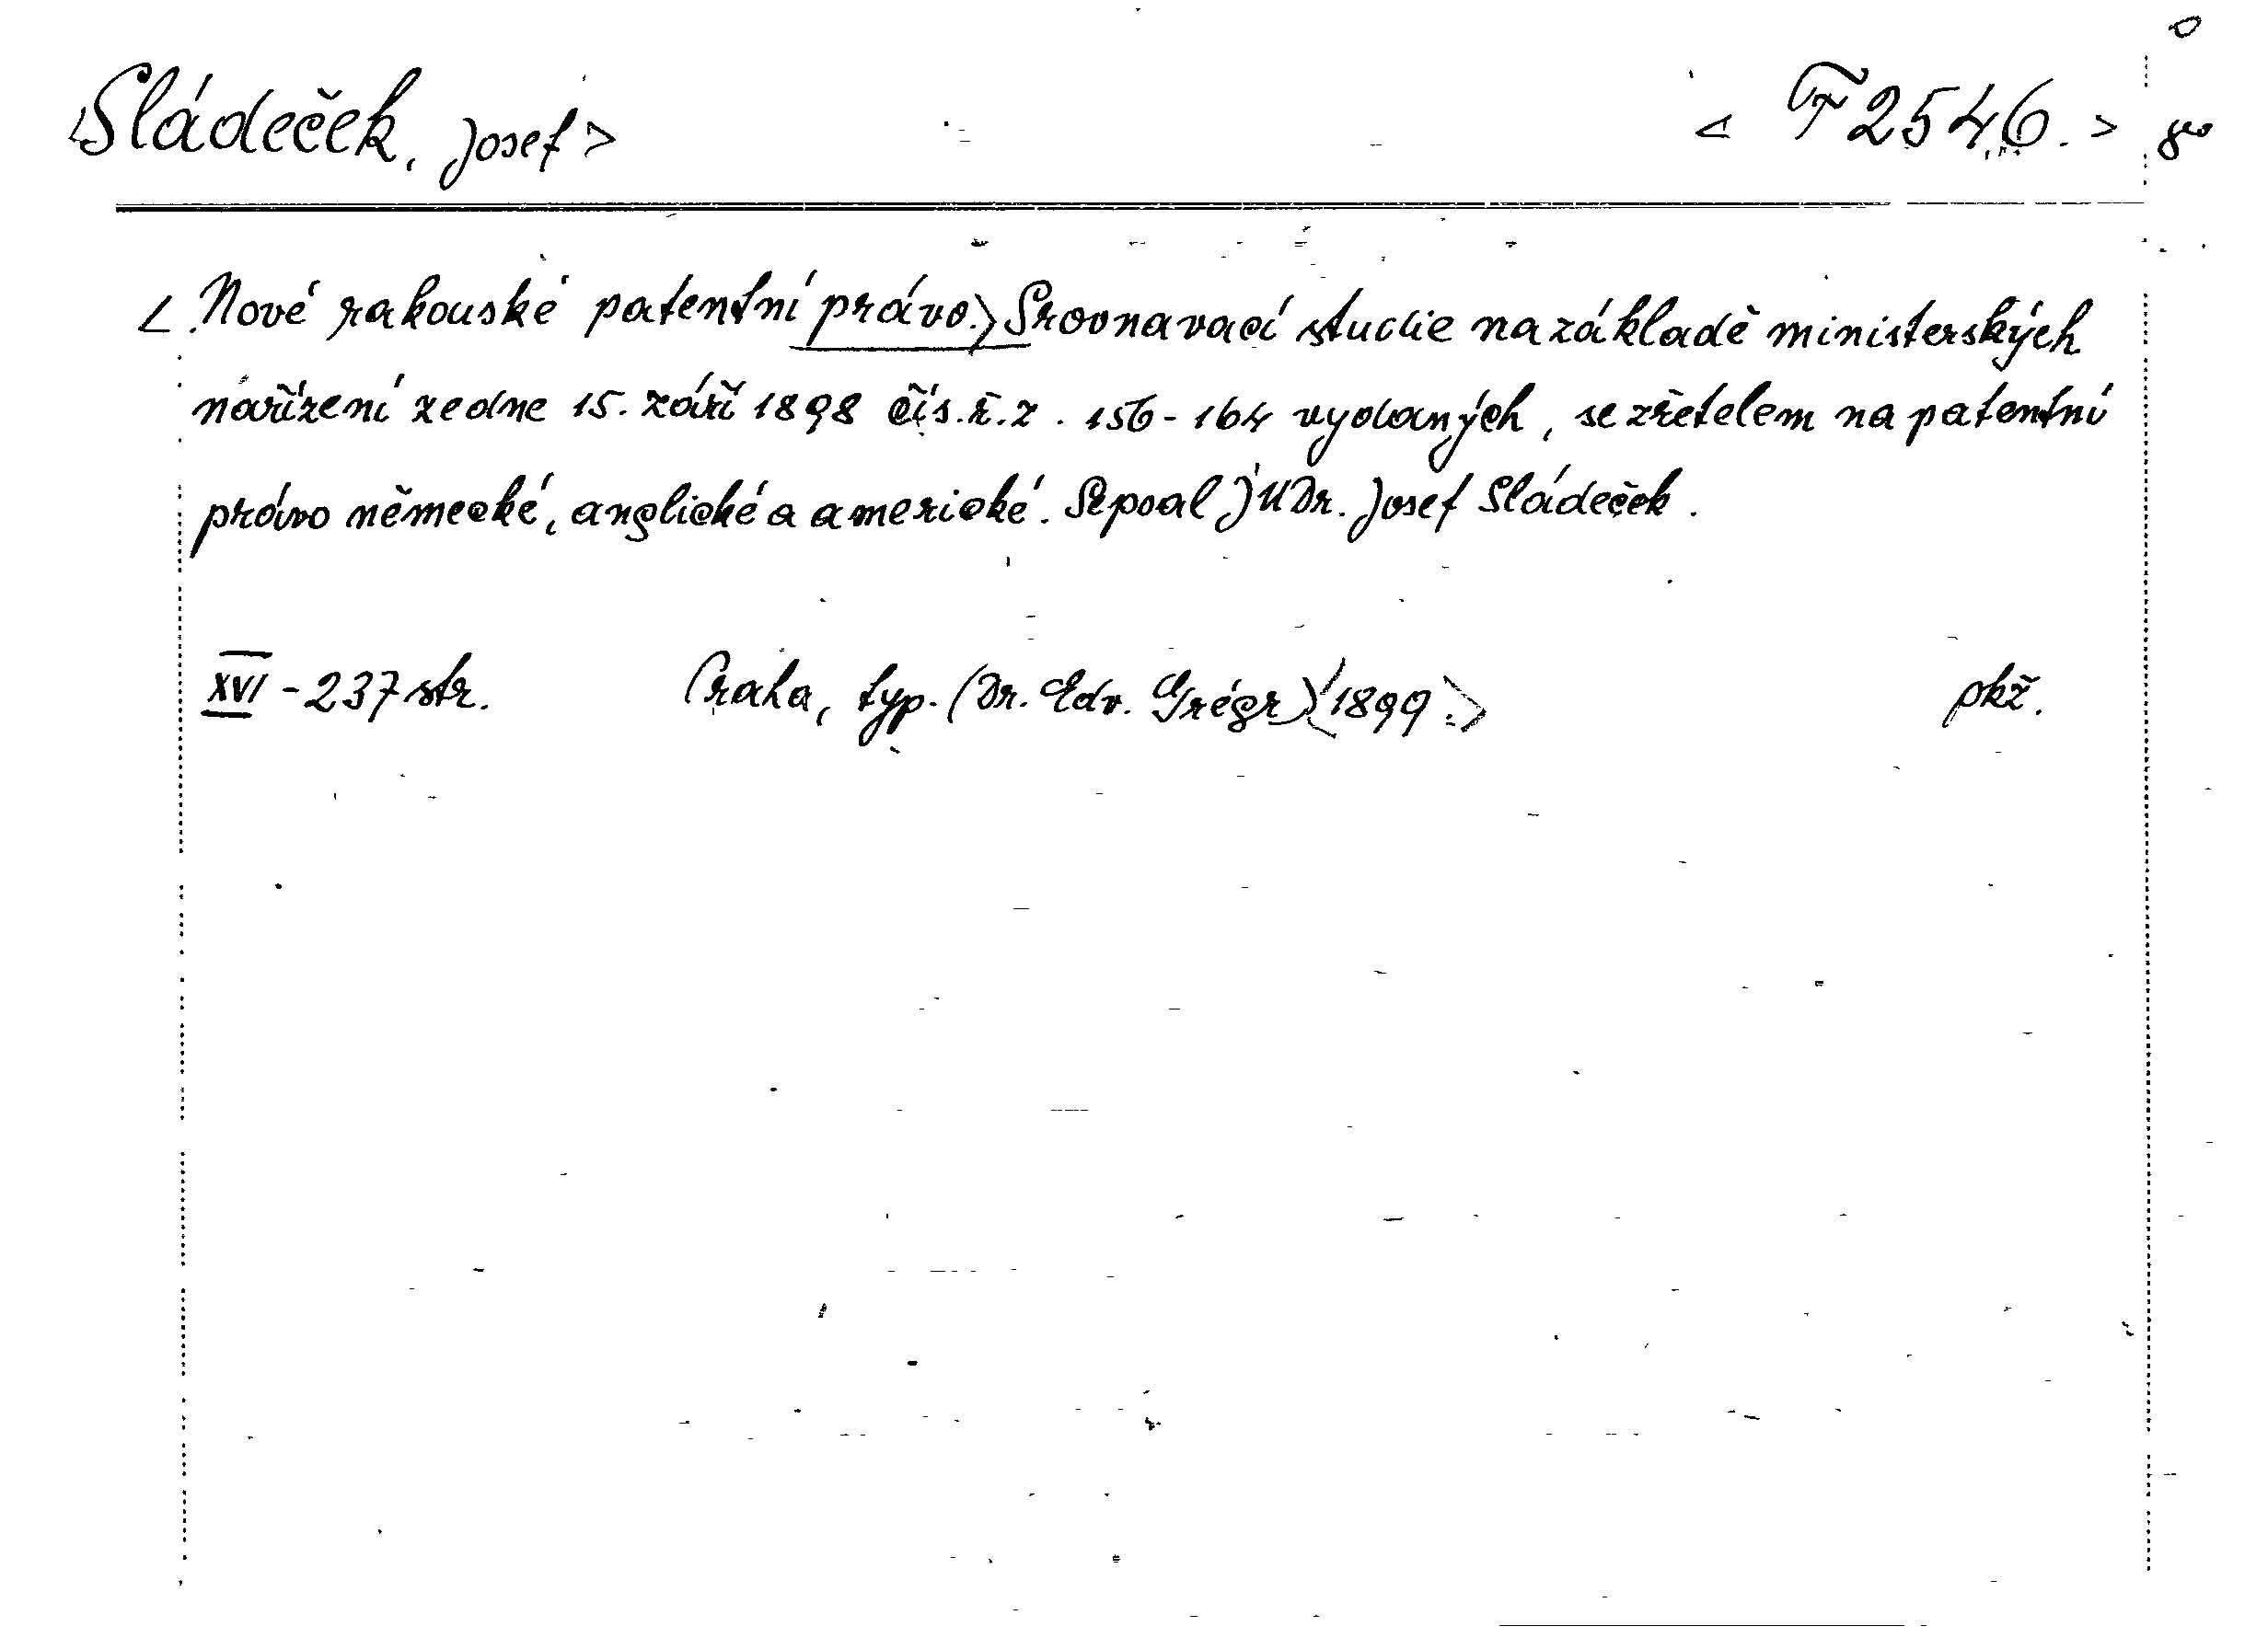 <Sládeček, Josef> < F 2546. > 8°
<Nové rakouské patentní právo.> Srovnavací studie na základě ministerských
nařízení ze dne 15. září 1898 čís. ř. z. 156-164 vydaných, se zřetelem na patentní
právo německé, anglické a americké. Sepsal JUDr. Josef Sládeček.
XVI - 237 str. Praha, typ. (Dr. Edv. Grégr) <1899.> pkž.